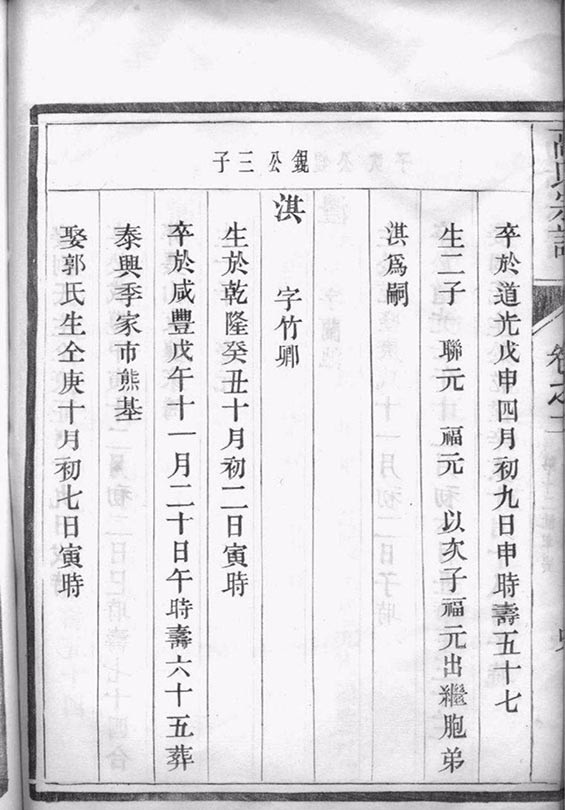 卷之
錕公三子
卒於道光戊申四月初九日申時壽五十七
生二子 聯元 福元 以次子福元出繼胞弟
淇爲嗣
淇 字竹卿
生於乾隆癸丑十月初二日寅時
卒於咸豐戊午十一月二十日午時壽六十五葬
泰興季家市熊基
娶郭氏生仝庚十月初七日寅時